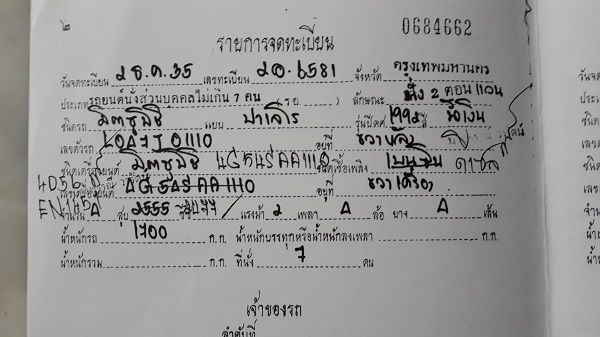 ๒ 0684662
รายการจดทะเบียน
วันจดทะเบียน ๒ ธ.ค.35 เลขทะเบียน 6581 จังหวัด กรุงเทพมหานคร
ประเภท รถยนต์นั่งส่วนบุคคลไม่เกิน 7 คน (รย. ) ลักษณะ นั่ง 2 ตอน แวน
ชนิดรถ มิตซูบิชิ แบบ ปาเจโร รุ่นปีคศ. 1992 สี น้ำเงิน
เลขตัวรถ LOAJJ01110 อยู่ที่ ขวาหลัง
ชนิดเครื่องยนต์ มิตซูบิชิ ชนิดเชื้อเพลิง เบนซิน ดีเซล
4D56 AG5ASRAA1110 อยู่ที่ ขวาเครื่อง
จำนวน 4 สูบ 2555 ซีซี 77 แรงม้า 2 เพลา 4 ล้อ ยาง 4 เส้น
น้ำหนักรถ 1700 ก.ก. น้ำหนักบรรทุกหรือน้ำหนักลงเพลา ก.ก.
น้ำหนักรวม ก.ก. ที่นั่ง 7 คน
เจ้าของรถ
ลำดับที่